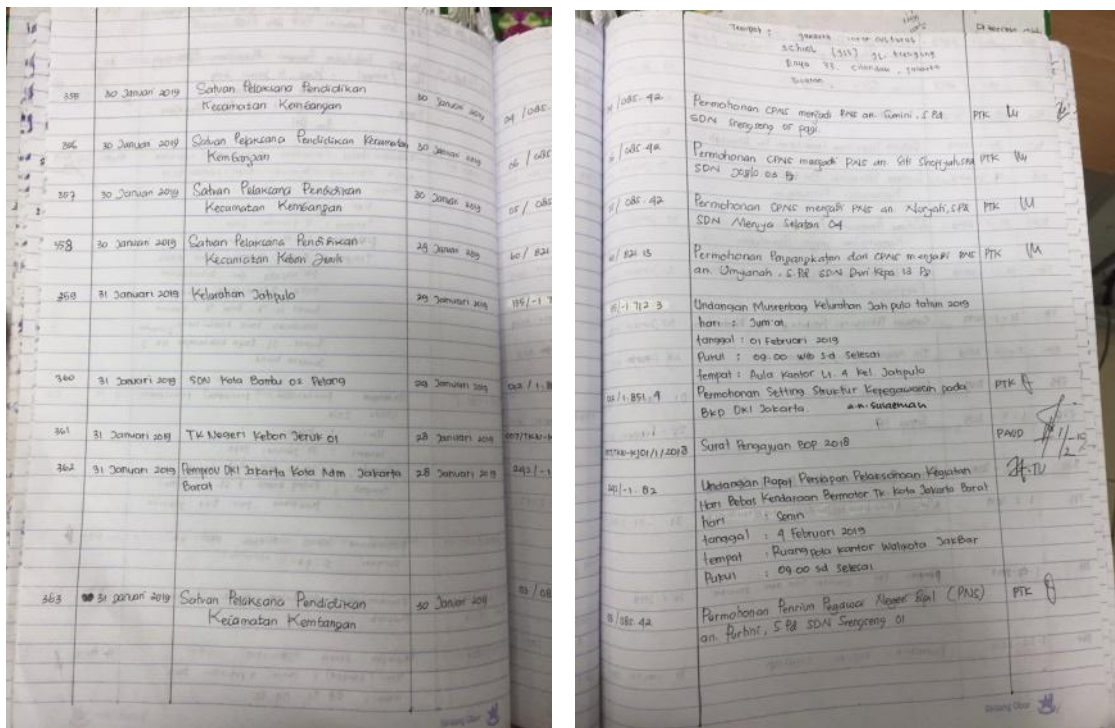 355 30 Januari 2019 Satuan Pelaksana Pendidikan 30 Januari 2019
Kecamatan Kembangan
356 30 Januari 2019 Satuan Pelaksana Pendidikan Kecamatan 30 Januari 2019
Kembangan
357 30 Januari 2019 Satuan Pelaksana Pendidikan 30 Januari 2019
Kecamatan Kembangan
358 30 Januari 2019 Satuan Pelaksana Pendidikan 29 Januari 2019
Kecamatan Kebon Jeruk
359 31 Januari 2019 Kelurahan Jatipulo 29 Januari 2019
360 31 Januari 2019 SDN Kota Bambu 02 Petang 29 Januari 2019
361 31 Januari 2019 TK Negeri Kebon Jeruk 01 28 Januari 2019
362 31 Januari 2019 Pemprov DKI Jakarta Kota Adm. Jakarta 28 Januari 2019
Barat
363 31 Januari 2019 Satuan Pelaksana Pendidikan 30 Januari 2019
Kecamatan Kembangan
Tempat :
school
Raya 33. Cilandak, Jakarta
Selatan
/085.42 Permohonan CPNS menjadi PNS an. Sumini, S.Pd PTK
SDN Srengseng 05 pagi.
/085.42 Permohonan CPNS menjadi PNS an. Siti PTK
SDN Joglo 02 Pg.
/085.42 Permohonan CPNS menjadi PNS an. Nuryati, S.Pd PTK
SDN Meruya Selatan 04
/821.13 Permohonan Pengangkatan dari CPNS menjadi PNS PTK
an. Umyanah, S.Pd SDN Duri Kepa 13 Pg
/-1.712.3 Undangan Musrenbag Kelurahan Jati pulo tahun 2019
hari : Jum'at
tanggal : 01 Februari 2019
Pukul : 09.00 wib s.d selesai
tempat : Aula Kantor Lt. 4 Kel. Jatipulo
/1.851.4 Permohonan Setting Struktur Kepegawaian pada PTK
BKD DKI Jakarta. a.n. Sulaeman
Surat Pengajuan BOP 2018 PAUD
242/-1.82 Undangan Rapat Persiapan Pelaksanaan Kegiatan
Hari Bebas Kendaraan Bermotor Tk. Kota Jakarta Barat
hari : Senin
tanggal : 4 Februari 2019
tempat : Ruang pola kantor Walikota JakBar
Pukul : 09.00 sd selesai
03/085.42 Permohonan Pensiun Pegawai Negeri Sipil (PNS) PTK
an. Purtini, S.Pd SDN Srengseng 01